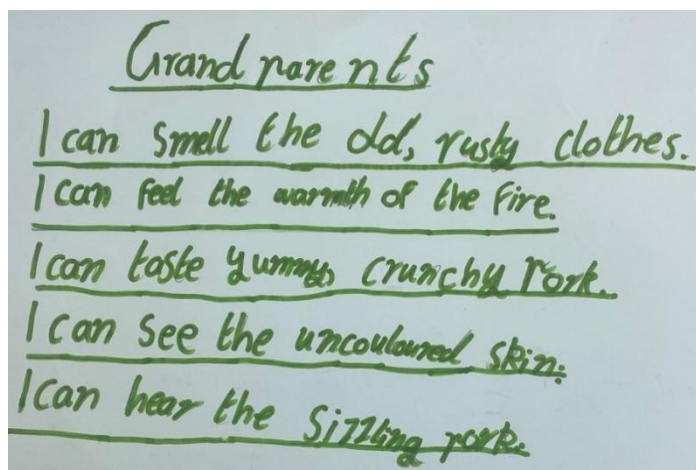 Grandparents
I can smell the old, rusty clothes.
I can feel the warmth of the fire.
I can taste yummy, crunchy Pork.
I can see the uncouloured skin.
I can hear the sizzling pork.